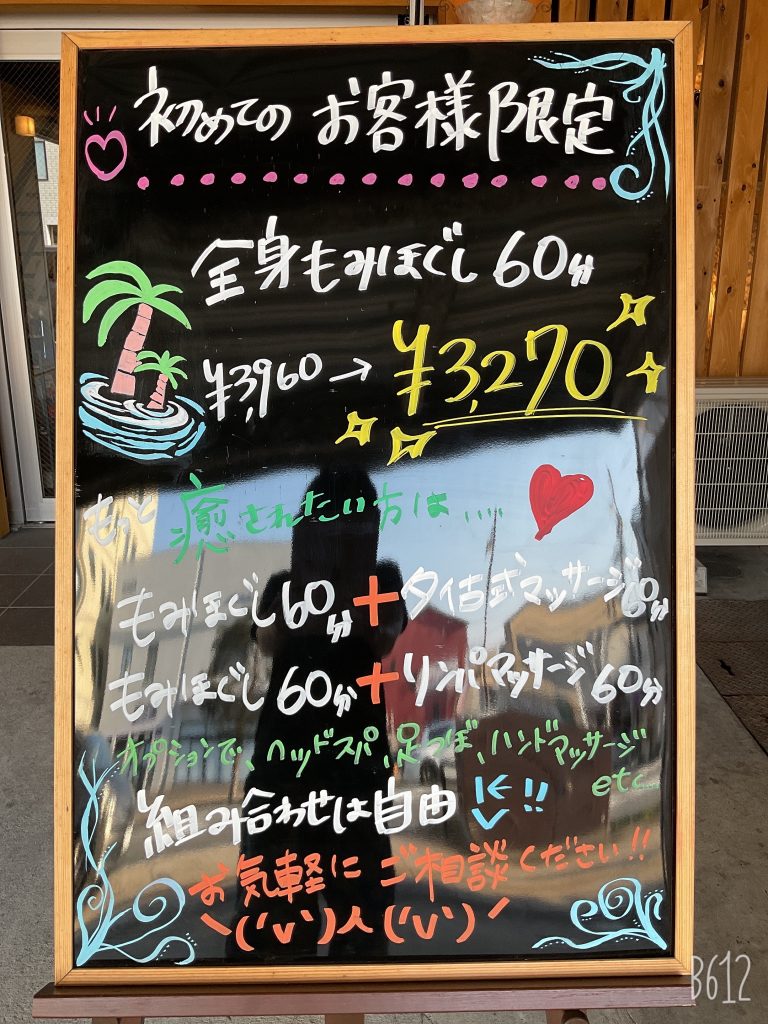 初めてのお客様限定
全身もみほぐし60分
¥3,960→¥3,270
もっと癒されたい方は....
もみほぐし60分+タイ古式マッサージ60分
もみほぐし60分+リンパマッサージ60分
オプションで、ヘッドスパ、足つぼ、ハンドマッサージ
etc...
組み合わせは自由!!
お気軽にご相談ください!!
\('v`)人('v`)/
B612